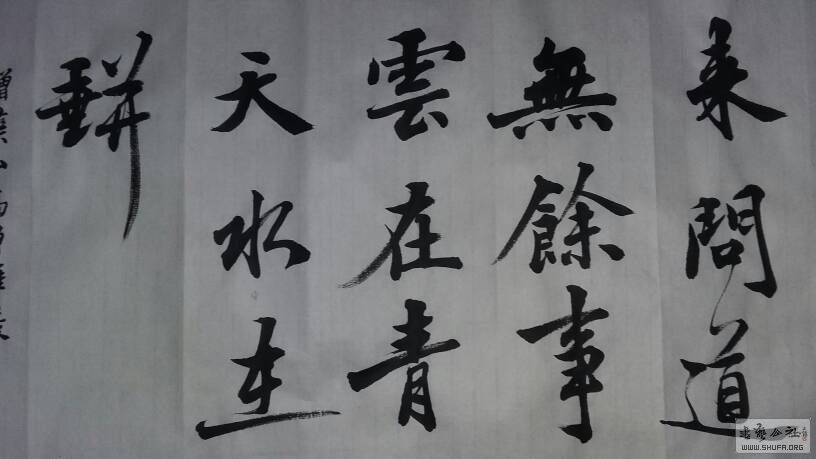 来問道
無餘事
雲在青
天水在
缾
書藝公社
WWW.SHUFA.ORG